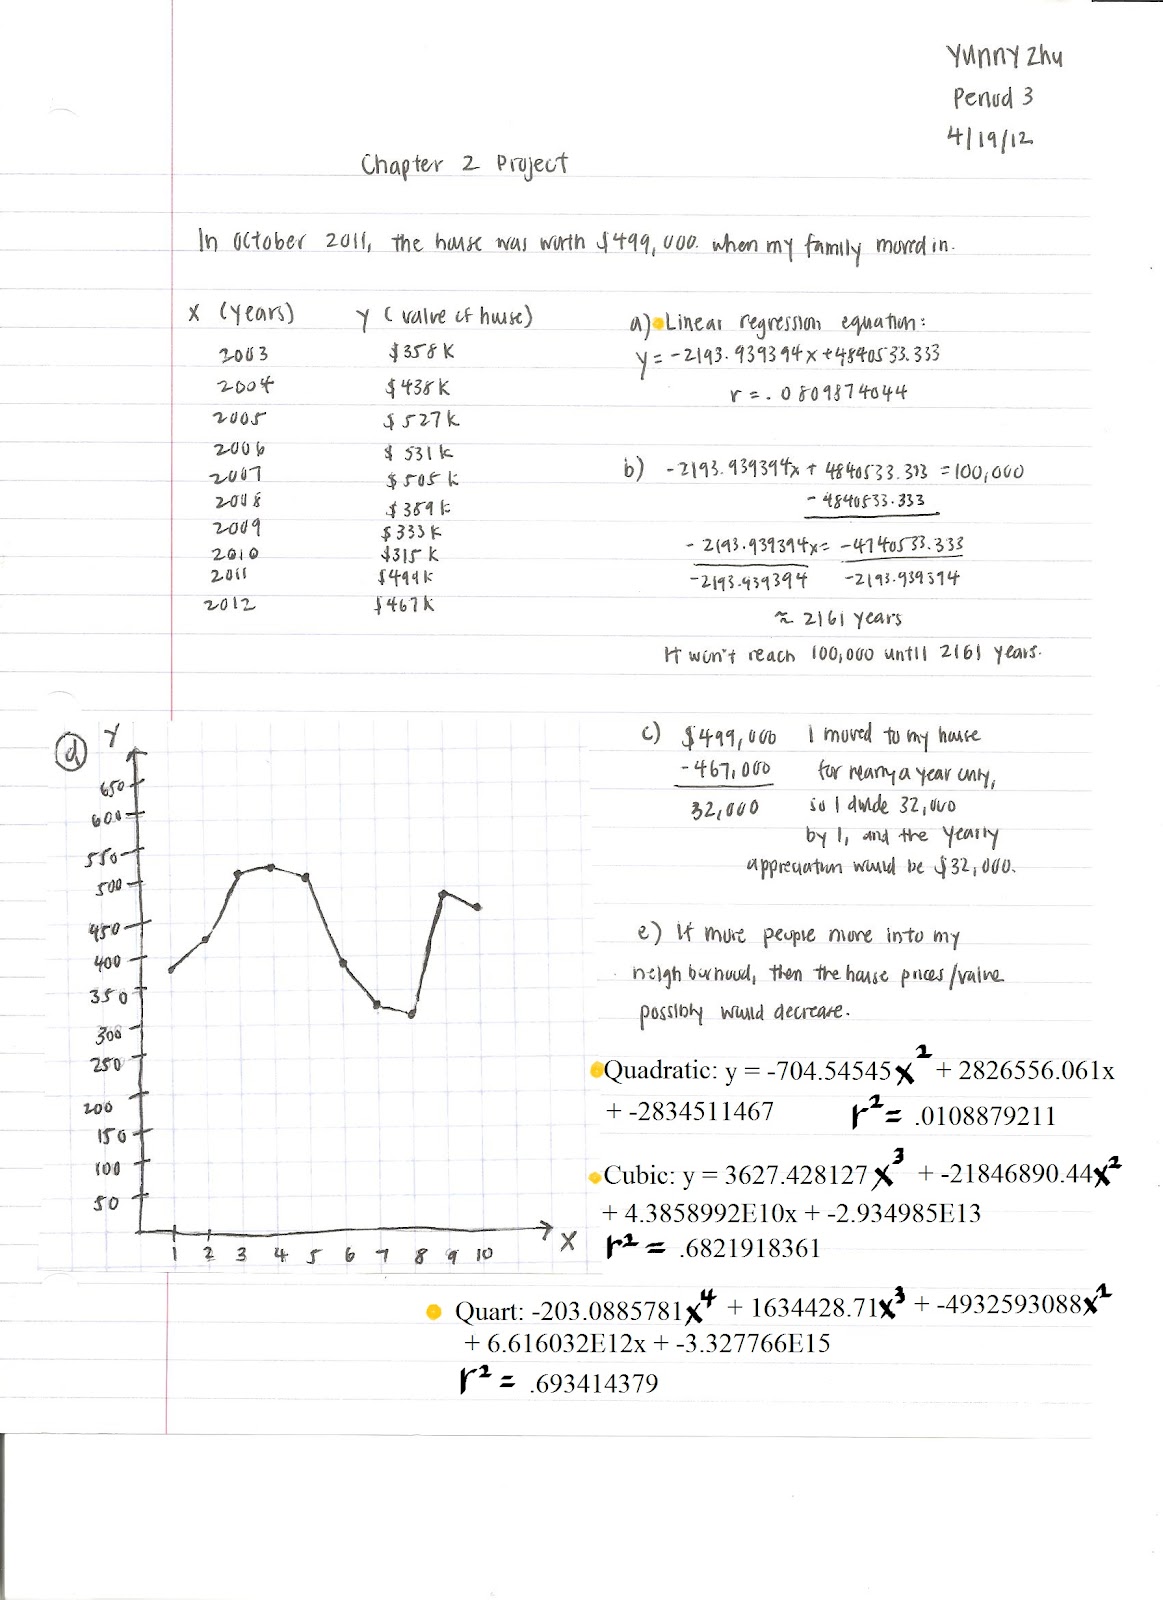 Yunny Zhu
Period 3
4/19/12
Chapter 2 Project
In October 2011, the house was worth $499,000. when my family moved in.
x (years) y (value of house)
2003 $358K
2004 $438K
2005 $527K
2006 $531K
2007 $505K
2008 $389K
2009 $333K
2010 $315K
2011 $499K
2012 $467K
a) Linear regression equation:
y = -2193.939394x + 4840533.333
r = .0809874044
b) -2193.939394x + 4840533.333 = 100,000
- 4840533.333
- 2193.939394x = -4740533.333
-2193.939394 -2193.939394
≈ 2161 years
It won't reach 100,000 until 2161 years.
c) $499,000 I moved to my house
-467,000 for nearly a year only,
32,000 so I divide 32,000
by 1, and the yearly
appreciation would be $32,000.
d
Y
650
600
550
500
450
400
350
300
250
200
150
100
50
1 2 3 4 5 6 7 8 9 10 X
e) If more people move into my
neighborhood, then the house prices/value
possibly would decrease.
Quadratic: y = -704.54545x² + 2826556.061x
+ -2834511467 r² = .0108879211
Cubic: y = 3627.428127x³ + -21846890.44x²
+ 4.3858992E10x + -2.934985E13
r² = .6821918361
Quart: -203.0885781x⁴ + 1634428.71x³ + -4932593088x²
+ 6.616032E12x + -3.327766E15
r² = .693414379